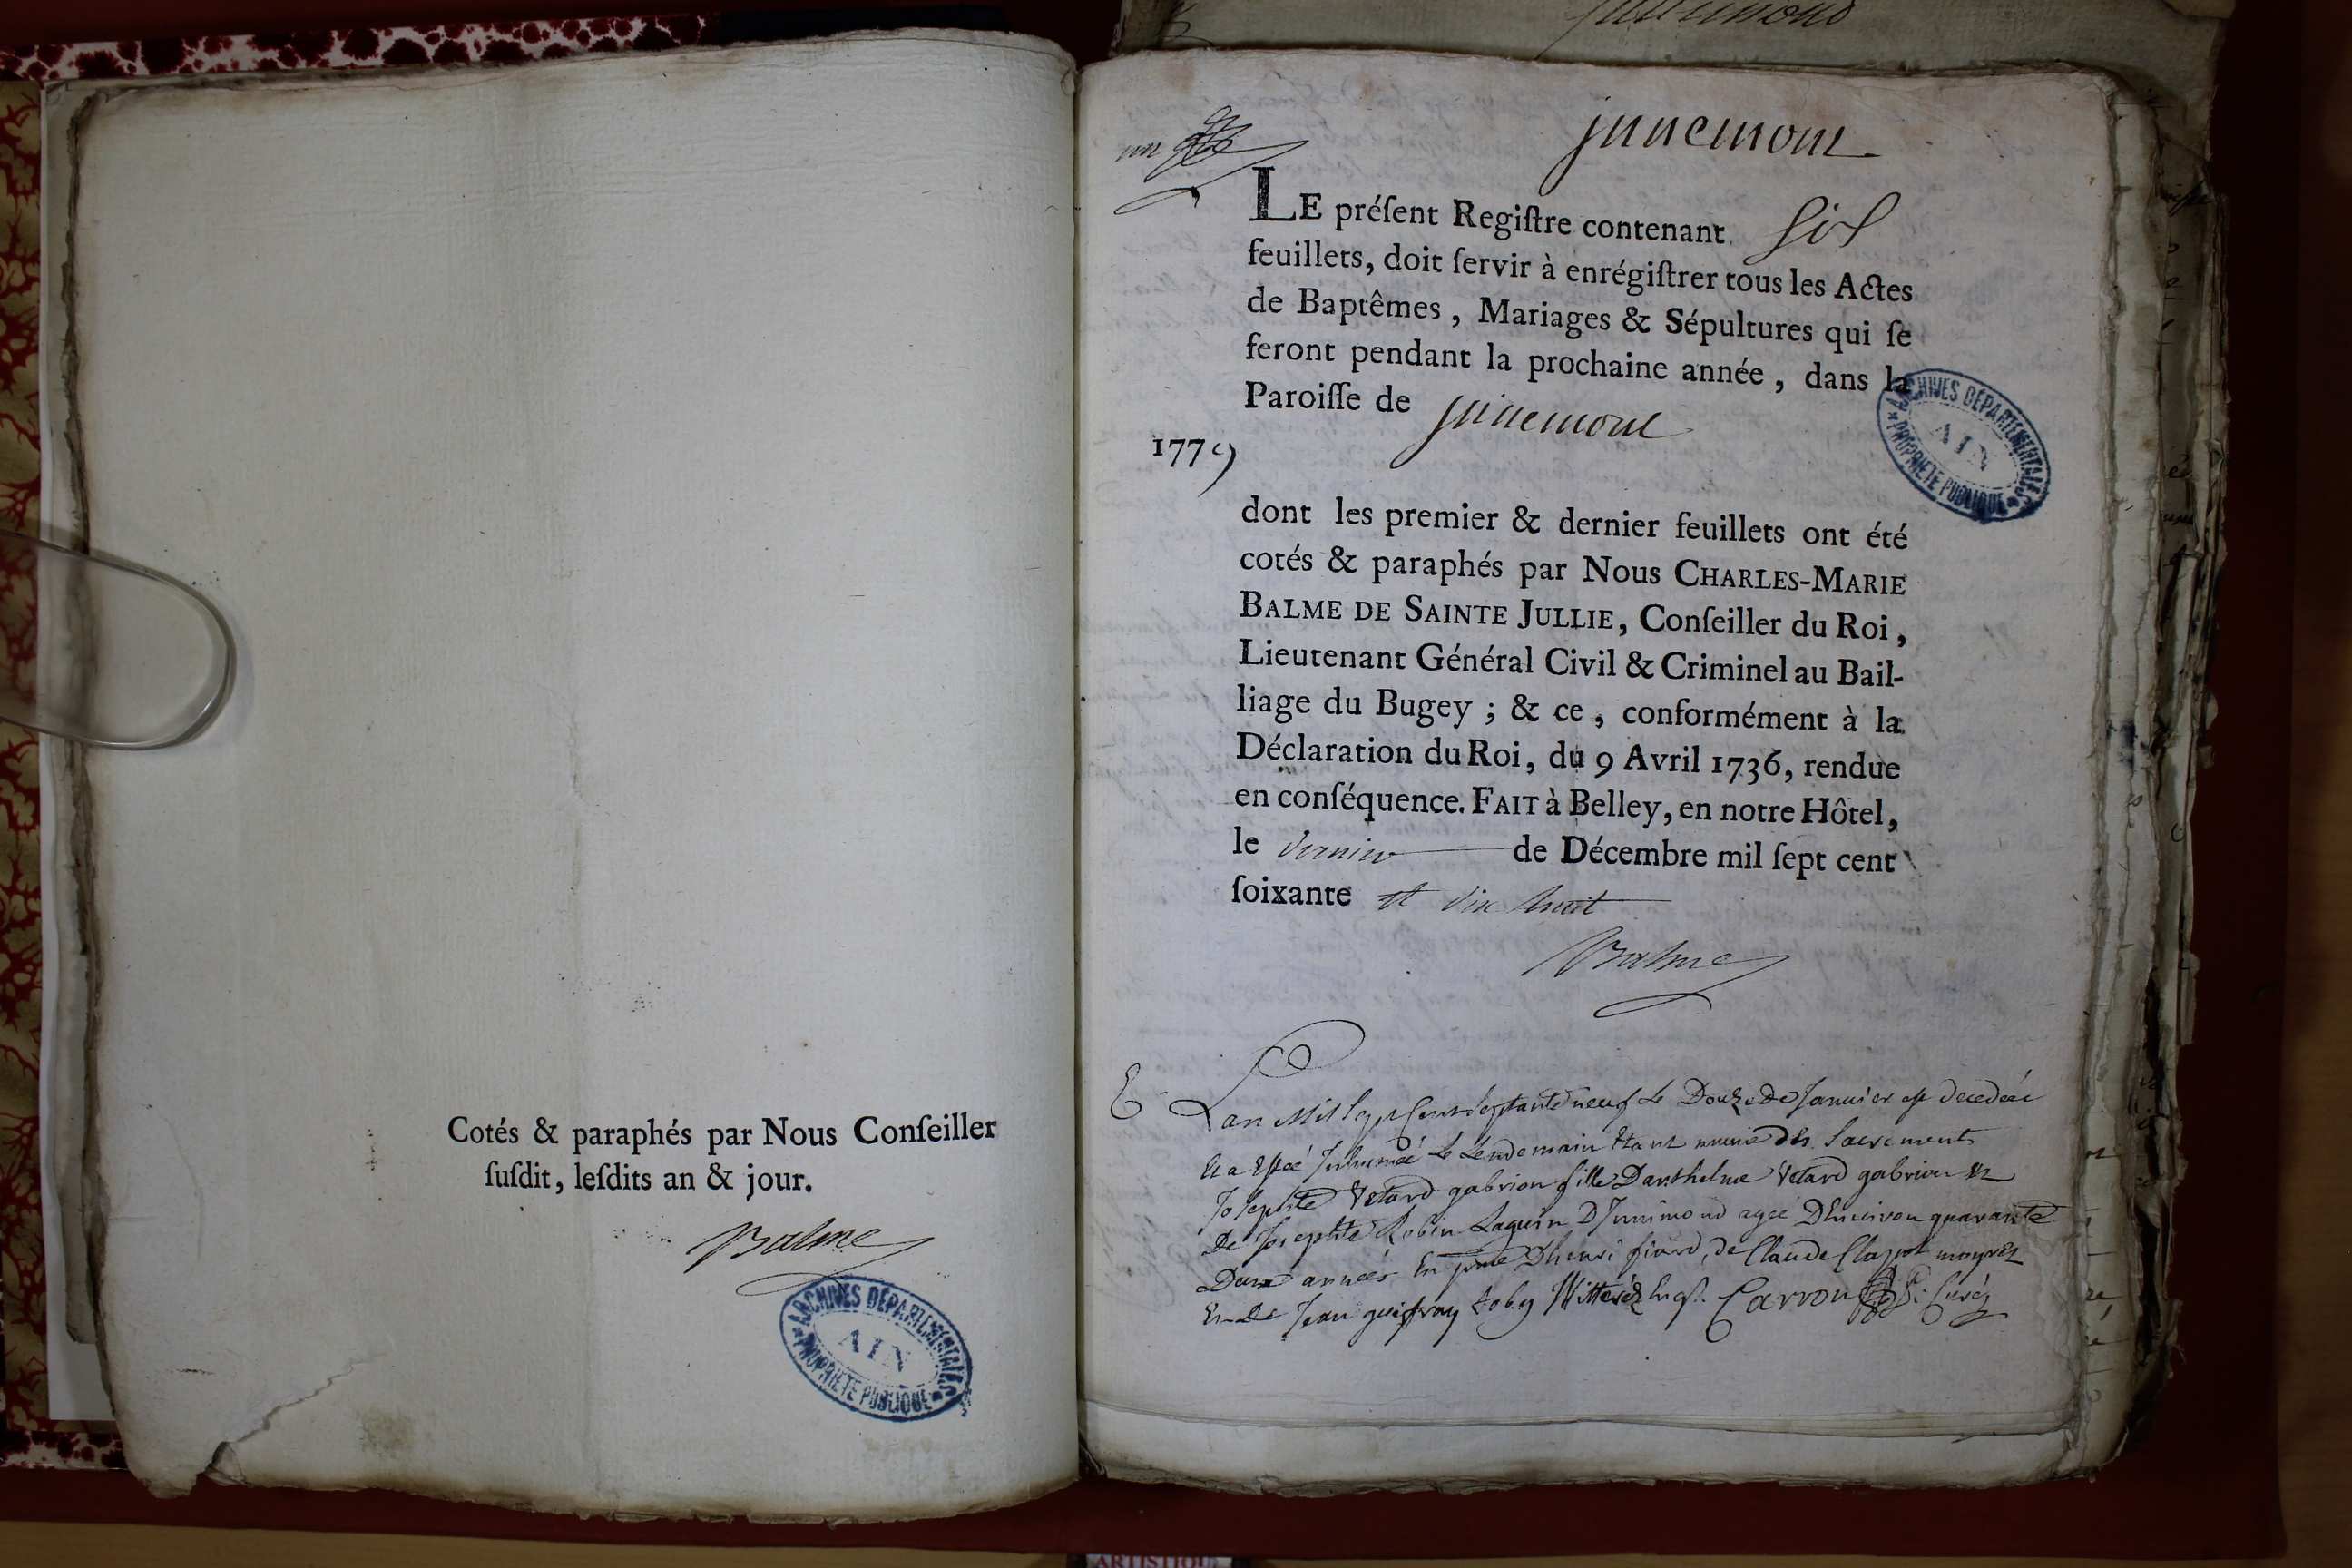 Cotés & paraphés par Nous Conſeiller
ſuſdit, leſdits an & jour.
Balme
ARCHIVES DEPARTEMENTALES
AIN
PROPRIETE PUBLIQUE
un
jnnemont
LE préſent Regiſtre contenant six
feuillets, doit ſervir à enrégiſtrer tous les Actes
de Baptêmes, Mariages & Sépultures qui ſe
feront pendant la prochaine année, dans la
Paroiſſe de jnnemont
1779
ARCHIVES DEPARTEMENTALES
AIN
PROPRIETE PUBLIQUE
dont les premier & dernier feuillets ont été
cotés & paraphés par Nous CHARLES-MARIE
BALME DE SAINTE JULLIE, Conſeiller du Roi,
Lieutenant Général Civil & Criminel au Bail-
liage du Bugey ; & ce, conformément à la
Déclaration du Roi, du 9 Avril 1736, rendue
en conſéquence. FAIT à Belley, en notre Hôtel,
le dernier de Décembre mil ſept cent
ſoixante et dix huit
Balme
E Lan Mil Sept Cent septante neuf Le Douze De Janvier est decedeée
Et a Esteé Inhumeé Le Lendemain Etant munie des Sacrements
Josephte Vetard gabrion fille Danthelme Vetard gabrion Et
De Josephte Robin Laguin D Innimond agee Denviron quarante
Deux anneés En pnce Dhenri fiard, de Claude Clapot
Et De Jean guiffray Carron Curé
ARTISTIQUE